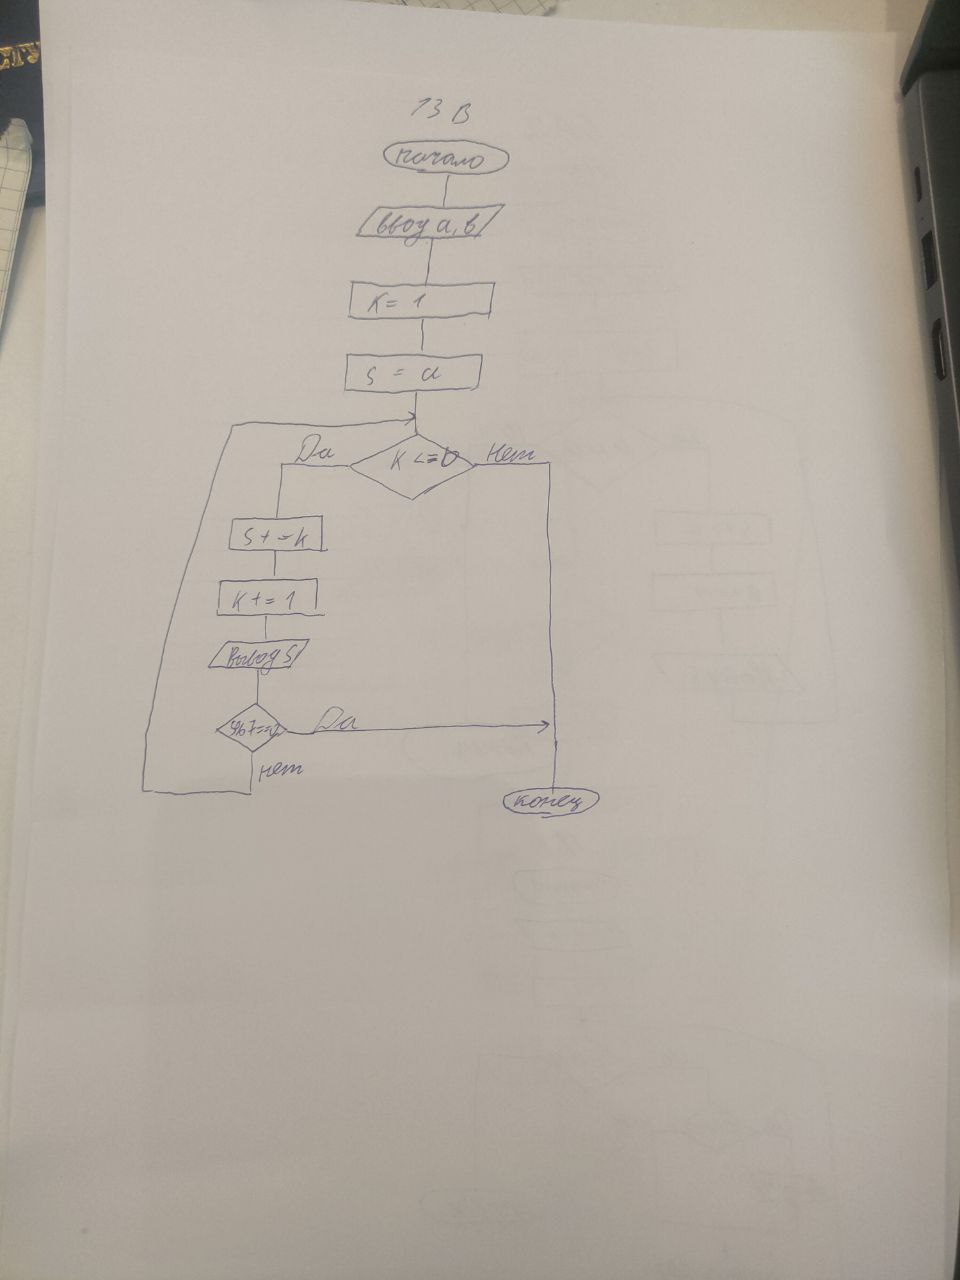 13 В
начало
ввод a, b
K = 1
S = a
K <= b
Да
Нет
S + = k
K + = 1
Вывод S
Да
нет
конец